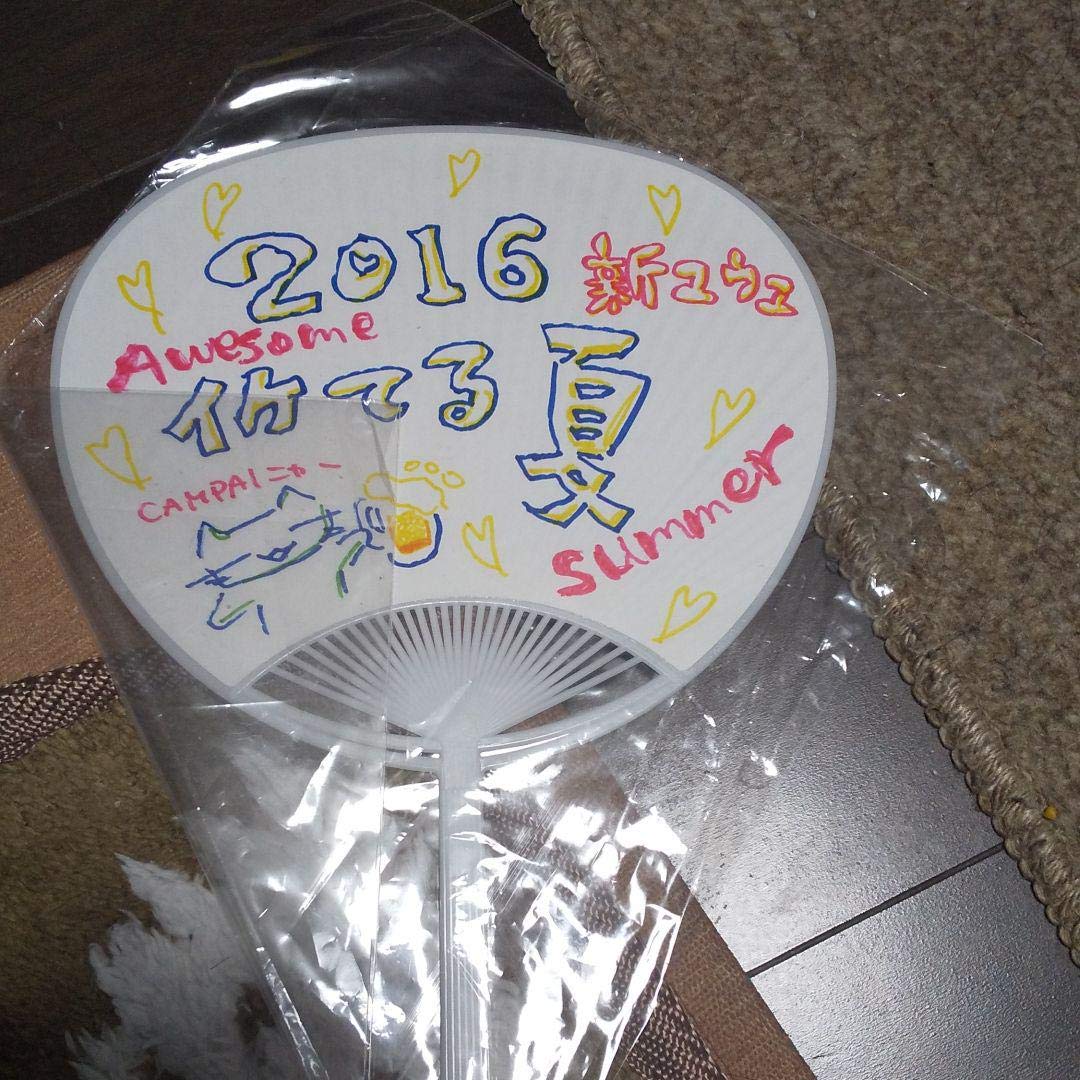 2016 新ユウユ
Awesome
イケてる 夏
CAMPAIニャー
summer